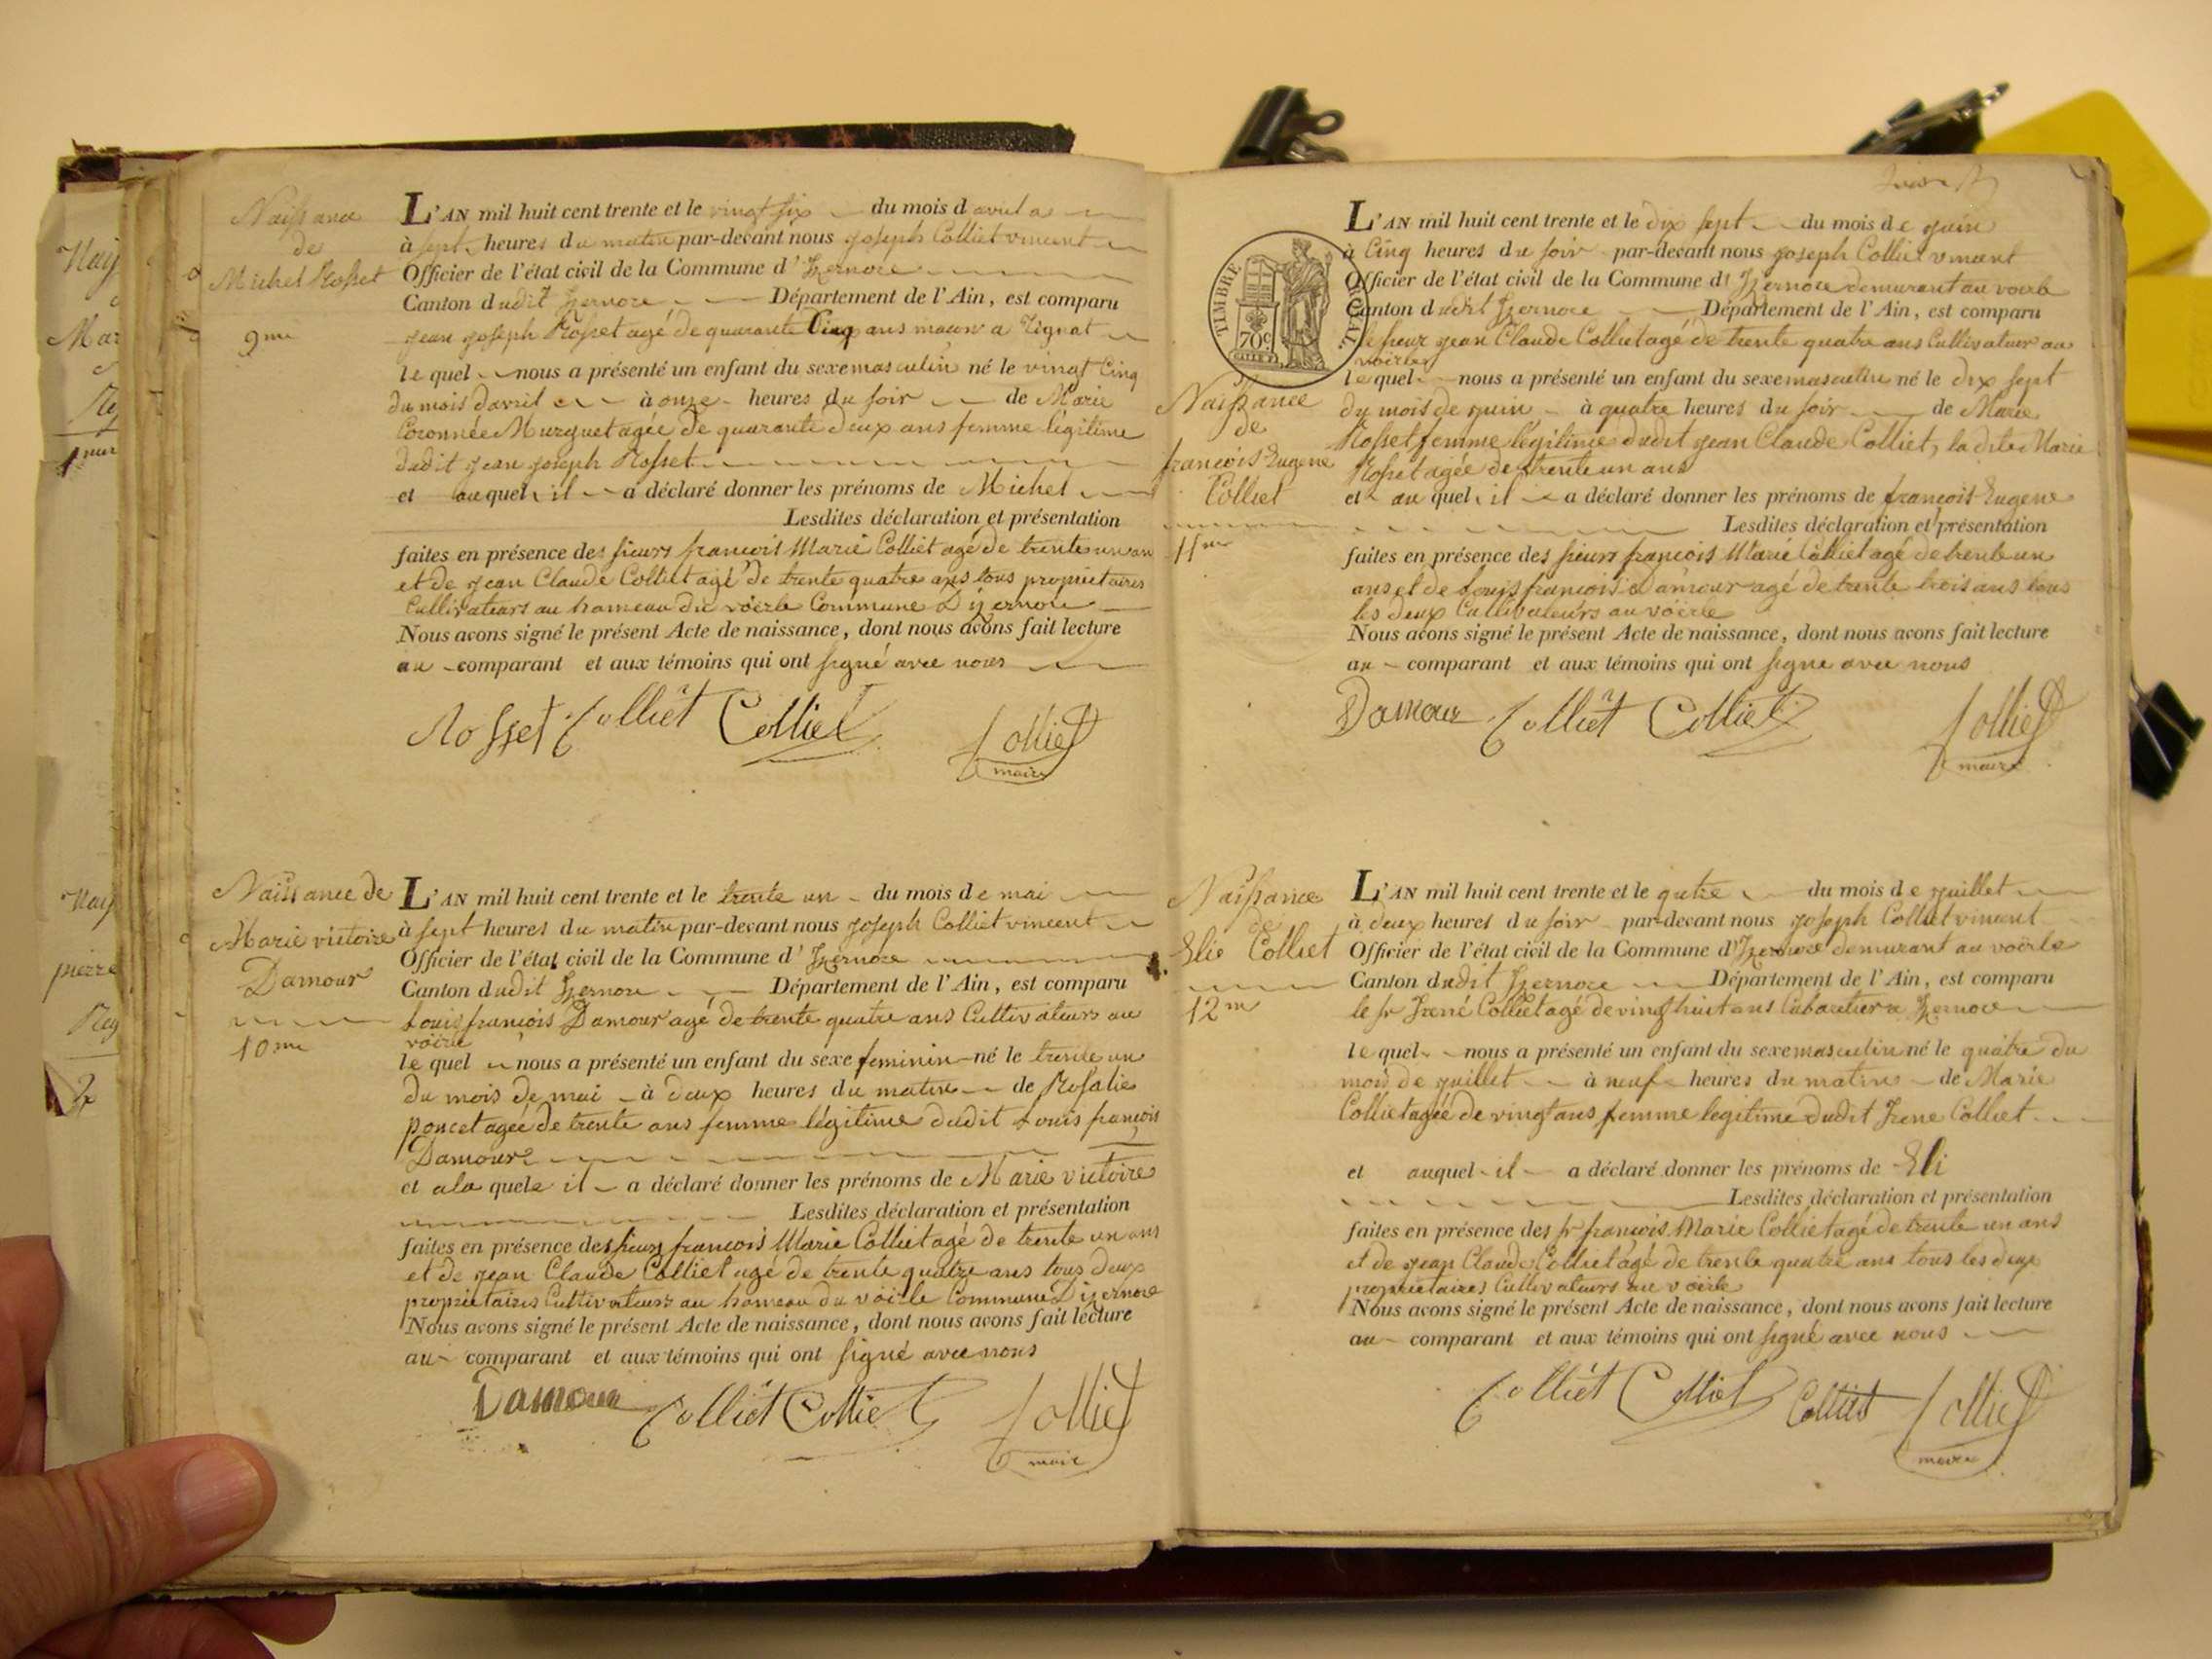 Naissance
de
Michel Rosset
9me
L'AN mil huit cent trente et le vingt six du mois d avril a
à sept heures du matin par-devant nous joseph Colliet vincent
Officier de l'état civil de la Commune d'Izernore
Canton dudit Izernore Département de l'Ain, est comparu
jean joseph Rosset agé de quarante Cinq ans macon a Tignat
lequel nous a présenté un enfant du sexe masculin né le vingt Cinq
du mois davril à onze heures du soir de Marie
Coronnée Murguet agée de quarante deux ans femme légitime
dudit jean joseph Rosset
et auquel il a déclaré donner les prénoms de Michel
Lesdites déclaration et présentation
faites en présence des sieurs francois Marie Colliet agé de trente un an
et de jean Claude Colliet agé de trente quatre ans tous proprietaires
Cultivateurs au hameau du voërle Commune Dizernore
Nous avons signé le présent Acte de naissance, dont nous avons fait lecture
au comparant et aux témoins qui ont signé avec nous
Rosset Colliet Colliet Colliet
maire
Naissance de
Marie victoire
Damour
10me
L'AN mil huit cent trente et le trente un du mois de mai
à sept heures du matin par-devant nous joseph Colliet vincent
Officier de l'état civil de la Commune d'Izernore
Canton dudit Izernore Département de l'Ain, est comparu
Louis francois Damour agé de trente quatre ans Cultivateurs au
voërle
lequel nous a présenté un enfant du sexe feminin né le trente un
du mois de mai à deux heures du matin de Rosalie
poncet agée de trente ans femme légitime dudit Louis francois
Damour
et ala quele il a déclaré donner les prénoms de Marie victoire
Lesdites déclaration et présentation
faites en présence des sieurs francois Marie Colliet agé de trente un ans
et de jean Claude Colliet agé de trente quatre ans tous deux
proprietaires Cultivateurs au hameau du voërle Commune Dizernore
Nous avons signé le présent Acte de naissance, dont nous avons fait lecture
au comparant et aux témoins qui ont signé avec nous
Damour Colliet Colliet Colliet
maire
TIMBRE
70c
Naissance
de
francois Eugene
Colliet
11me
L'AN mil huit cent trente et le dix sept du mois de juin
à Cinq heures du soir par-devant nous joseph Colliet vincent
Officier de l'état civil de la Commune d'Izernore demurant au voerle
Canton dudit Izernore Département de l'Ain, est comparu
le sieur jean Claude Colliet agé de trente quatre ans Cultivateur au
voerle
lequel nous a présenté un enfant du sexe masculin né le dix sept
du mois de juin à quatre heures du soir de Marie
Rosset femme légitime dudit jean Claude Colliet, la dite Marie
Rosset agée de trente un ans
et au quel il a déclaré donner les prénoms de francois Eugene
Lesdites déclaration et présentation
faites en présence des sieurs francois Marie Colliet agé de trente un
ans et de Louis francois Damour agé de trente trois ans tous
les deux Cultivateurs au voërle
Nous avons signé le présent Acte de naissance, dont nous avons fait lecture
au comparant et aux témoins qui ont signe avec nous
Damour Colliet Colliet Colliet
maire
Naissance
de
Elie Colliet
12me
L'AN mil huit cent trente et le qutre du mois de juillet
à deux heures du soir par-devant nous joseph Colliet vincent
Officier de l'état civil de la Commune d'Izernore demurant au voërle
Canton dudit Izernore Département de l'Ain, est comparu
le sr Irené Colliet agé de vingt huit ans Cabaretier a Izernore
lequel nous a présenté un enfant du sexe masculin né le quatre du
mois de juillet à neuf heures du matin de Marie
Colliet agéé de vingt ans femme legitime dudit Irene Colliet
et auquel il a déclaré donner les prénoms de Eli
Lesdites déclaration et présentation
faites en présence des sr francois Marie Colliet agé de trente un ans
et de jean Claude Colliet agé de trente quatre ans tous les deux
proprietaires Cultivateurs au voërle
Nous avons signé le présent Acte de naissance, dont nous avons fait lecture
au comparant et aux témoins qui ont signé avec nous
Colliet Colliet Colliet Colliet
maire